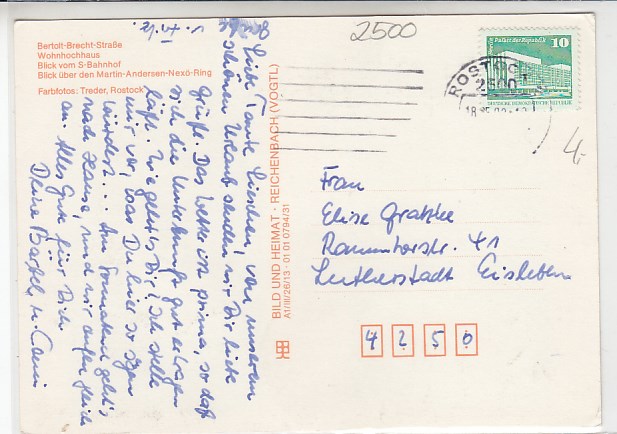 2500
Bertolt-Brecht-Straße
Wohnhochhaus
Blick vom S-Bahnhof
Blick über den Martin-Andersen-Nexö-Ring
Farbfotos: Treder, Rostock
Liebe Tante Lieschen, von unserem
schönen Urlaub senden wir Dir liebe
Grüße. Das Wetter ist prima, so daß
sich die Unterkunft gut ertragen
läßt. Wie geht's Dir? Ich stelle
mir vor, was Du hier so sagen
würdest... Am Sonnabend geht's
nach Hause, und wir rufen gleich
an. Alles Gute für Dich
Deine Bärbel u.
BILD UND HEIMAT · REICHENBACH (VOGTL)
A1/III/26/13 · 01 01 0794/31
Palast der Republik
10
DEUTSCHE DEMOKRATISCHE REPUBLIK
ROSTOCK 1
2500
4,-
Frau
Elise Gratzke
Rammtorstr. 41
Lutherstadt Eisleben
4 2 5 0